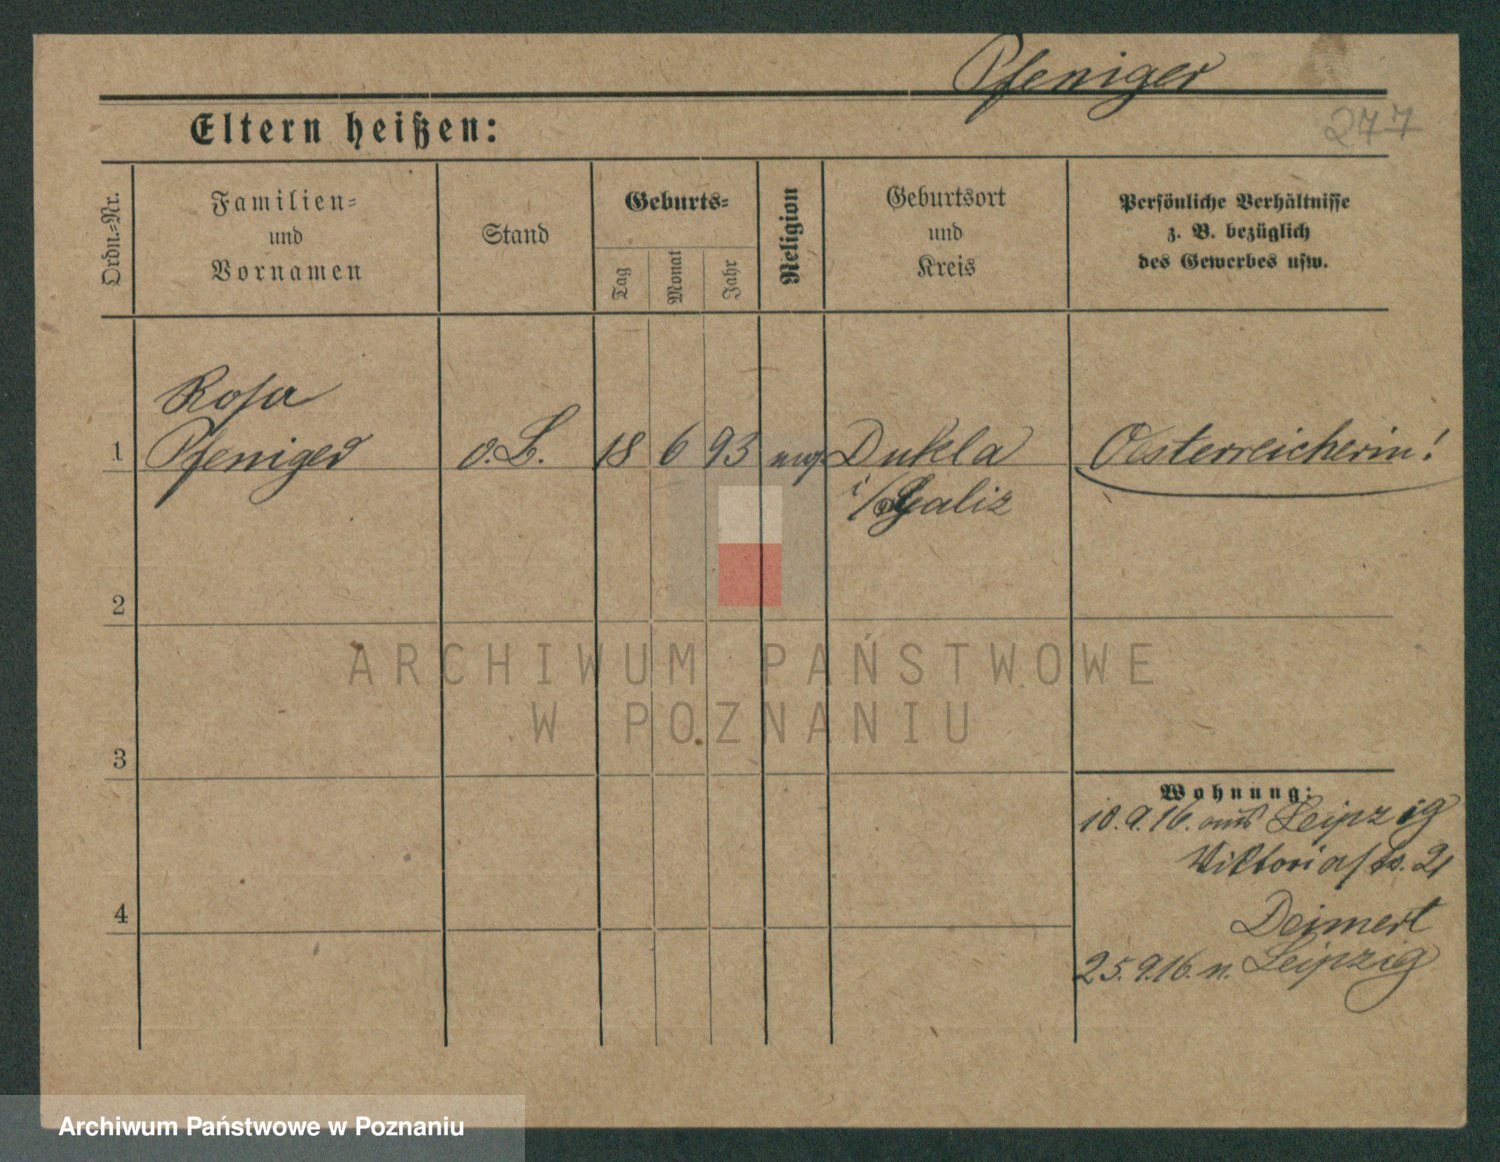 Pfeniger
277
Eltern heißen:
Ordn.-Nr.
Familien-
und
Vornamen
Stand
Geburts-
Tag
Monat
Jahr
Religion
Geburtsort
und
Kreis
Persönliche Verhältnisse
z. B. bezüglich
des Gewerbes usw.
Rosa
1 Pfeniger o.B. 18 6 93 Dukla Oesterreicherin!
i/Galiz
2
ARCHIWUM PAŃSTWOWE
W POZNANIU
3
Wohnung:
10.9.16. aus Leipzig
Viktoriastr. 21
Deimert
4
25.9.16. n. Leipzig
Archiwum Państwowe w Poznaniu